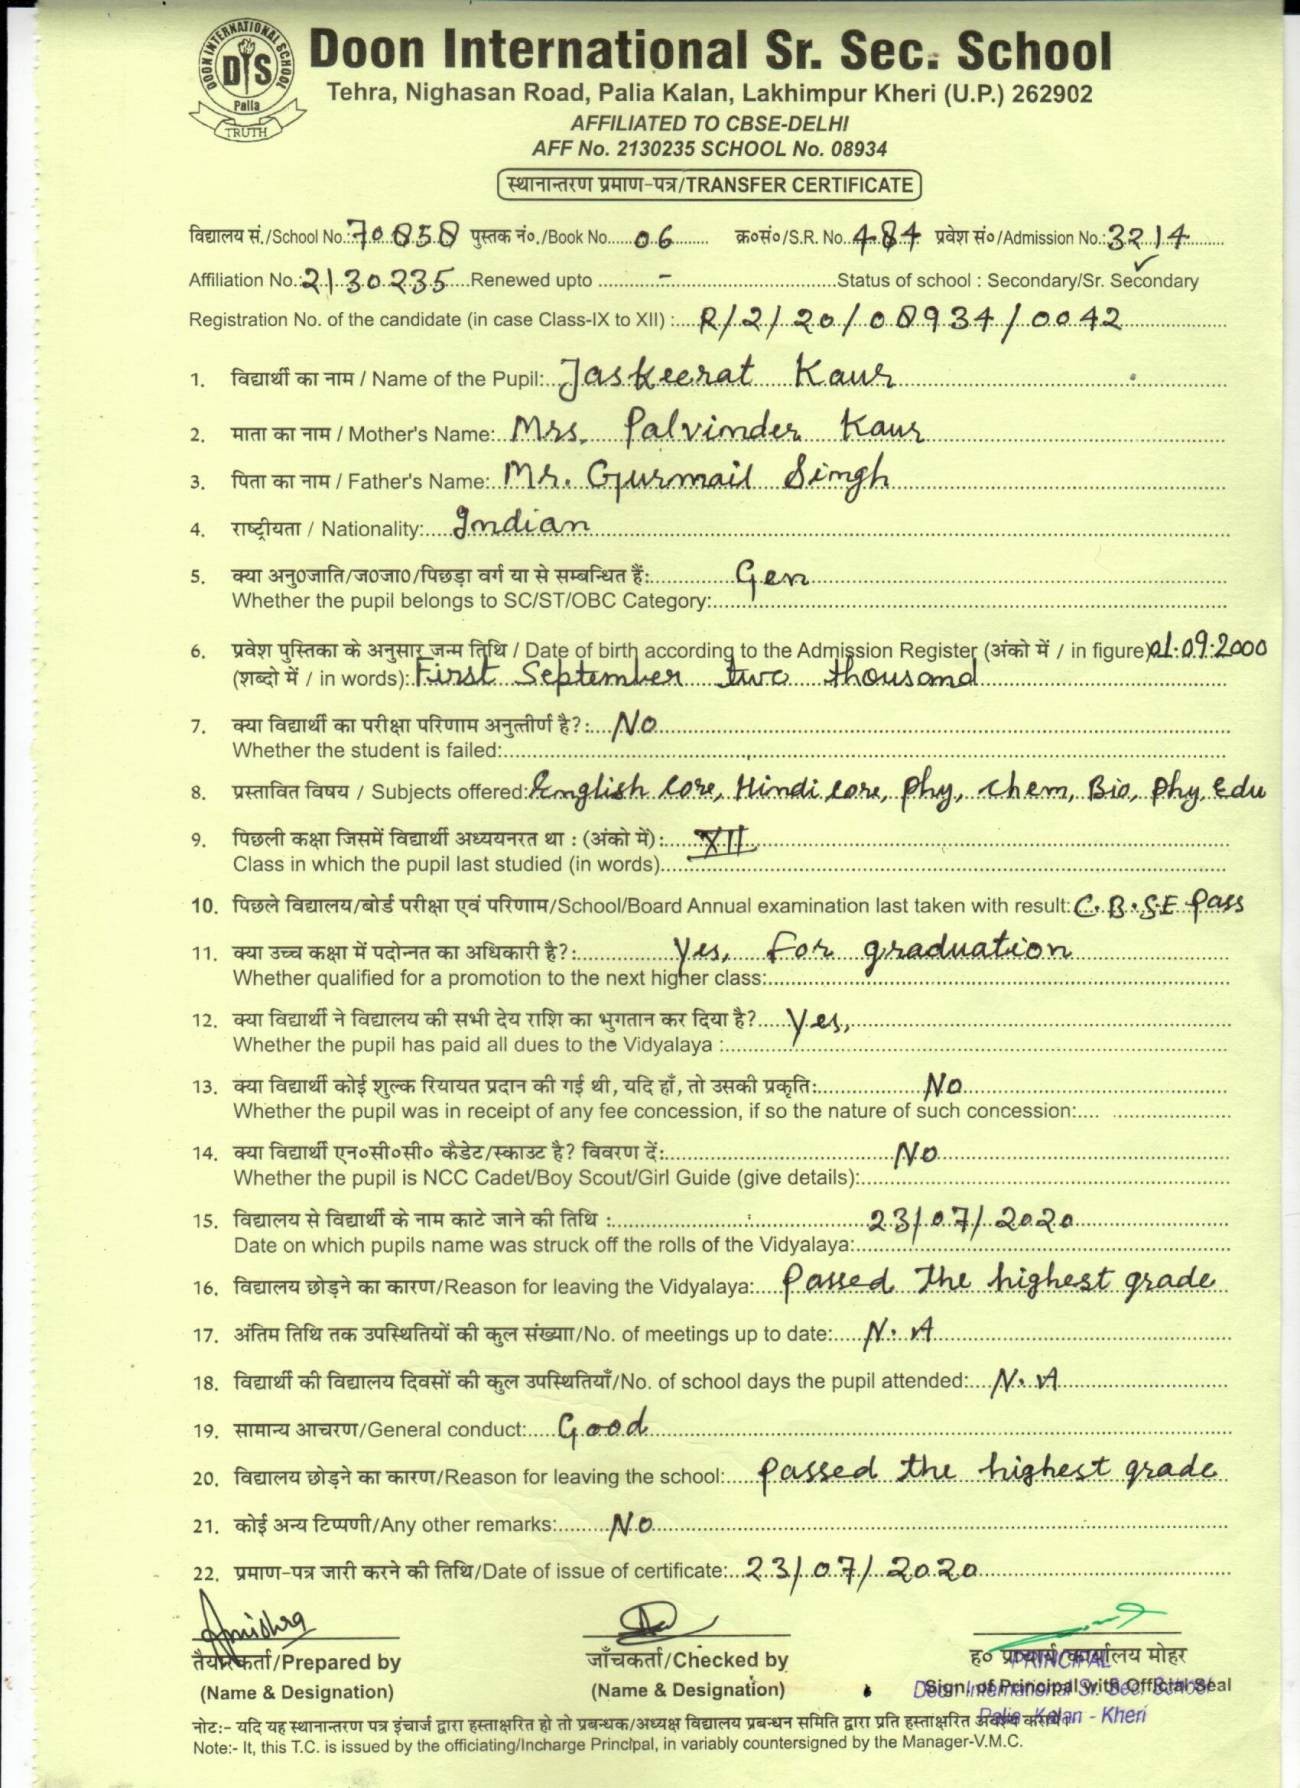 DOON INTERNATIONAL SCHOOL
DIS
Palia
TRUTH
Doon International Sr. Sec. School
Tehra, Nighasan Road, Palia Kalan, Lakhimpur Kheri (U.P.) 262902
AFFILIATED TO CBSE-DELHI
AFF No. 2130235 SCHOOL No. 08934
स्थानान्तरण प्रमाण-पत्र/TRANSFER CERTIFICATE
विद्यालय सं./School No.: 70858 पुस्तक नं०./Book No. 06 क्र०सं०/S.R. No. 484 प्रवेश सं०/Admission No.: 3214
Affiliation No.: 2130235 Renewed upto - Status of school : Secondary/Sr. Secondary
Registration No. of the candidate (in case Class-IX to XII) : R/2/20/08934/0042
1. विद्यार्थी का नाम / Name of the Pupil: Jaskeerat Kaur
2. माता का नाम / Mother's Name: Mrs. Palvinder Kaur
3. पिता का नाम / Father's Name: Mr. Gurmail Singh
4. राष्ट्रीयता / Nationality: Indian
5. क्या अनु0जाति/ज0जा0/पिछड़ा वर्ग या से सम्बन्धित हैं: Gen
Whether the pupil belongs to SC/ST/OBC Category:
6. प्रवेश पुस्तिका के अनुसार जन्म तिथि / Date of birth according to the Admission Register (अंको में / in figure) 01.09.2000
(शब्दो में / in words): First September two thousand
7. क्या विद्यार्थी का परीक्षा परिणाम अनुत्तीर्ण है? : No
Whether the student is failed:
8. प्रस्तावित विषय / Subjects offered: English Core, Hindi core, Phy, Chem, Bio, Phy. Edu
9. पिछली कक्षा जिसमें विद्यार्थी अध्ययनरत था : (अंको में) : XII
Class in which the pupil last studied (in words)
10. पिछले विद्यालय/बोर्ड परीक्षा एवं परिणाम/School/Board Annual examination last taken with result: C.B.S.E Pass
11. क्या उच्च कक्षा में पदोन्नत का अधिकारी है?: Yes, For graduation
Whether qualified for a promotion to the next higher class:
12. क्या विद्यार्थी ने विद्यालय की सभी देय राशि का भुगतान कर दिया है? Yes,
Whether the pupil has paid all dues to the Vidyalaya :
13. क्या विद्यार्थी कोई शुल्क रियायत प्रदान की गई थी, यदि हाँ, तो उसकी प्रकृति: No
Whether the pupil was in receipt of any fee concession, if so the nature of such concession:
14. क्या विद्यार्थी एन०सी०सी० कैडेट/स्काउट है? विवरण दें: No
Whether the pupil is NCC Cadet/Boy Scout/Girl Guide (give details):
15. विद्यालय से विद्यार्थी के नाम काटे जाने की तिथि : 23/07/2020
Date on which pupils name was struck off the rolls of the Vidyalaya:
16. विद्यालय छोड़ने का कारण/Reason for leaving the Vidyalaya: Passed the highest grade
17. अंतिम तिथि तक उपस्थितियों की कुल संख्याा/No. of meetings up to date: N.A
18. विद्यार्थी की विद्यालय दिवसों की कुल उपस्थितियाँ/No. of school days the pupil attended: N.A
19. सामान्य आचरण/General conduct: Good
20. विद्यालय छोड़ने का कारण/Reason for leaving the school: Passed the highest grade
21. कोई अन्य टिप्पणी/Any other remarks: No
22. प्रमाण-पत्र जारी करने की तिथि/Date of issue of certificate: 23/07/2020
तैयारकर्ता/Prepared by जाँचकर्ता/Checked by ह० प्राचार्य/कार्यालय मोहर
PRINCIPAL
(Name & Designation) (Name & Designation) Sign. of Principal with Official Seal
Doon International Sr. Sec. School
Palia Kalan - Kheri
नोटः- यदि यह स्थानान्तरण पत्र इंचार्ज द्वारा हस्ताक्षरित हो तो प्रबन्धक/अध्यक्ष विद्यालय प्रबन्धन समिति द्वारा प्रति हस्ताक्षरित अवश्य करायें।
Note:- It, this T.C. is issued by the officiating/Incharge Principal, in variably countersigned by the Manager-V.M.C.